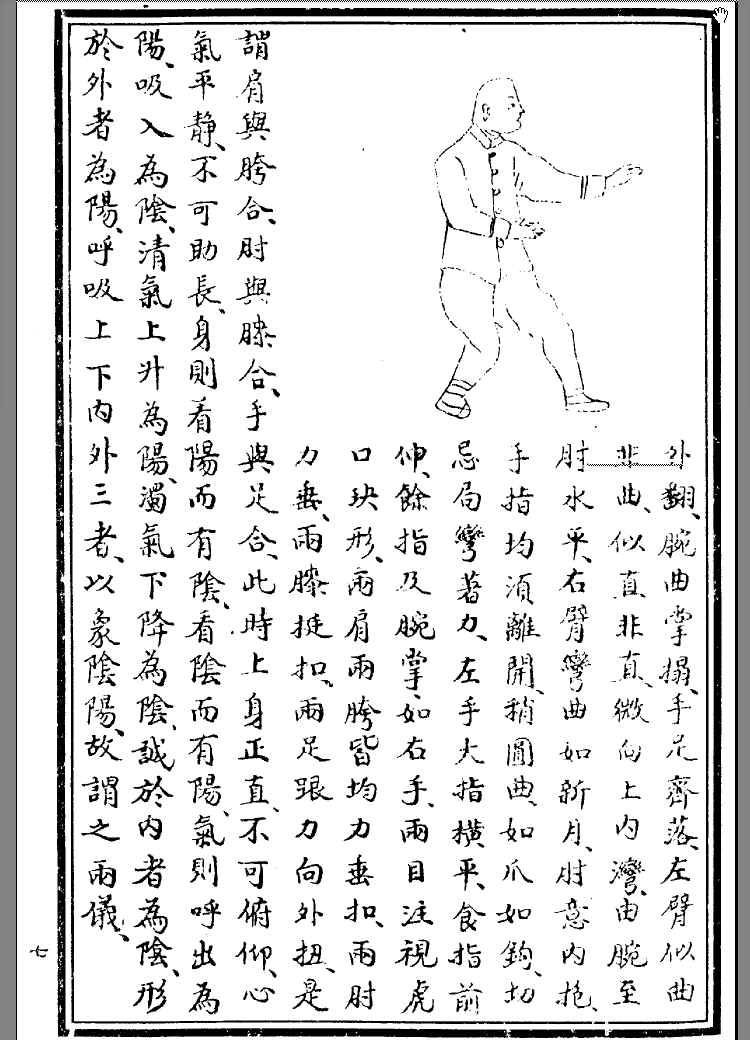 外翻、腕曲掌搨、手足齊落、左臂似曲
非曲、似直非直、微向上內灣、由腕至
肘水平、右臂彎曲如新月、肘意內抱、
手指均須離開、稍圓曲、如爪如鉤、切
忌局彎著力、左手大指橫平、食指前
伸、餘指及腕掌、如右手、兩目注視虎
口玦形、兩肩兩胯皆均力垂扣、兩肘
力垂、兩膝挺扣、兩足跟力向外扭、是
謂肩與胯合、肘與膝合、手與足合、此時上身正直、不可俯仰、心
氣平靜、不可助長、身則看陽而有陰、看陰而有陽、氣則呼出為
陽、吸入為陰、清氣上升為陽、濁氣下降為陰、誠於內者為陰、形
於外者為陽、呼吸上下內外三者、以象陰陽、故謂之兩儀、
七